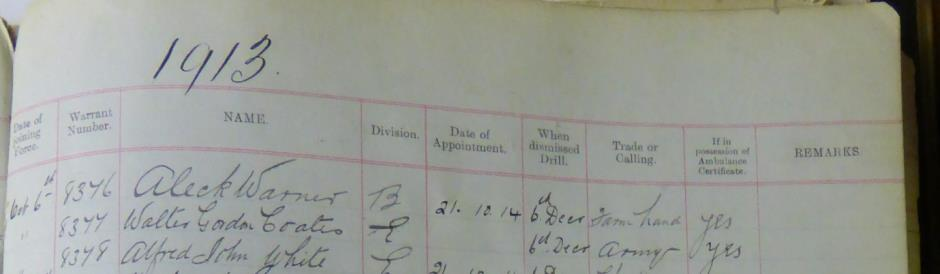 1913.
Date of Joining Force. Warrant Number. NAME. Division. Date of Appointment. When dismissed Drill. Trade or Calling. If in possession of Ambulance Certificate. REMARKS.
Oct 6 8376 Aleck Warner B 21. 10. 14 6th Decr Farm hand yes
" 8377 Walter Gordon Coates E 6th Decr Army yes
8378 Alfred John White